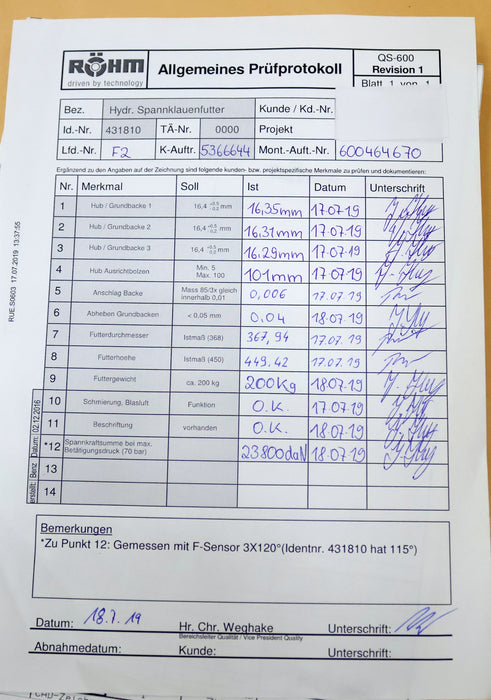 RÖHM
driven by technology
Allgemeines Prüfprotokoll
QS-600
Revision 1
Blatt 1 von 1
Bez. Hydr. Spannklauenfutter Kunde / Kd.-Nr.
Id.-Nr. 431810 TÄ-Nr. 0000 Projekt
Lfd.-Nr. F2 K-Auftr. 5366644 Mont.-Auft.-Nr. 600464670
Ergänzend zu den Angaben auf der Zeichnung sind folgende kunden- bzw. projektspezifische Merkmale zu prüfen und dokumentieren:
Nr. Merkmal Soll Ist Datum Unterschrift
1 Hub / Grundbacke 1 16,4 +0,5 -0,2 mm 16,35mm 17.07.19
2 Hub / Grundbacke 2 16,4 +0,5 -0,2 mm 16,31mm 17.07.19
3 Hub / Grundbacke 3 16,4 +0,5 -0,2 mm 16,29mm 17.07.19
4 Hub Ausrichtbolzen Min. 5 Max. 100 101mm 17.07.19
5 Anschlag Backe Mass 85/3x gleich innerhalb 0,01 0,006 17.07.19
6 Abheben Grundbacken < 0,05 mm 0.04 18.07.19
7 Futterdurchmesser Istmaß (368) 367,94 17.07.19
8 Futterhoehe Istmaß (450) 449,42 17.07.19
9 Futtergewicht ca. 200 kg 200Kg 18.07.19
10 Schmierung, Blasluft Funktion O.K. 17.07.19
11 Beschriftung vorhanden O.K. 18.07.19
*12 Spannkraftsumme bei max. Betätigungsdruck (70 bar) 23800daN 18.07.19
13
14
RUE.S0603 17.07.2019 13:37:55
erstellt: Benz Datum: 02.12.2016
Bemerkungen
*Zu Punkt 12: Gemessen mit F-Sensor 3X120°(Identnr. 431810 hat 115°)
Datum: 18.7.19 Hr. Chr. Weghake Unterschrift:
Bereichsleiter Qualität / Vice President Quality
Abnahmedatum: Kunde: Unterschrift: